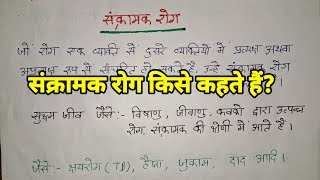 संक्रामक रोग
जो रोग एक व्यक्ति से दूसरे व्यक्तियों में प्रत्यक्ष अथवा
अप्रत्यक्ष रूप से
उन्हें संक्रामक रोग
संक्रामक रोग किसे कहते हैं?
सूक्ष्म जीव जैसे:- विषाणु, जीवाणु, कवको द्वारा उत्पन्न
रोग संक्रामक की श्रेणी में आते है ।
जैसे:- क्षयरोग (TB), हैजा, जुकाम, दाद आदि ।